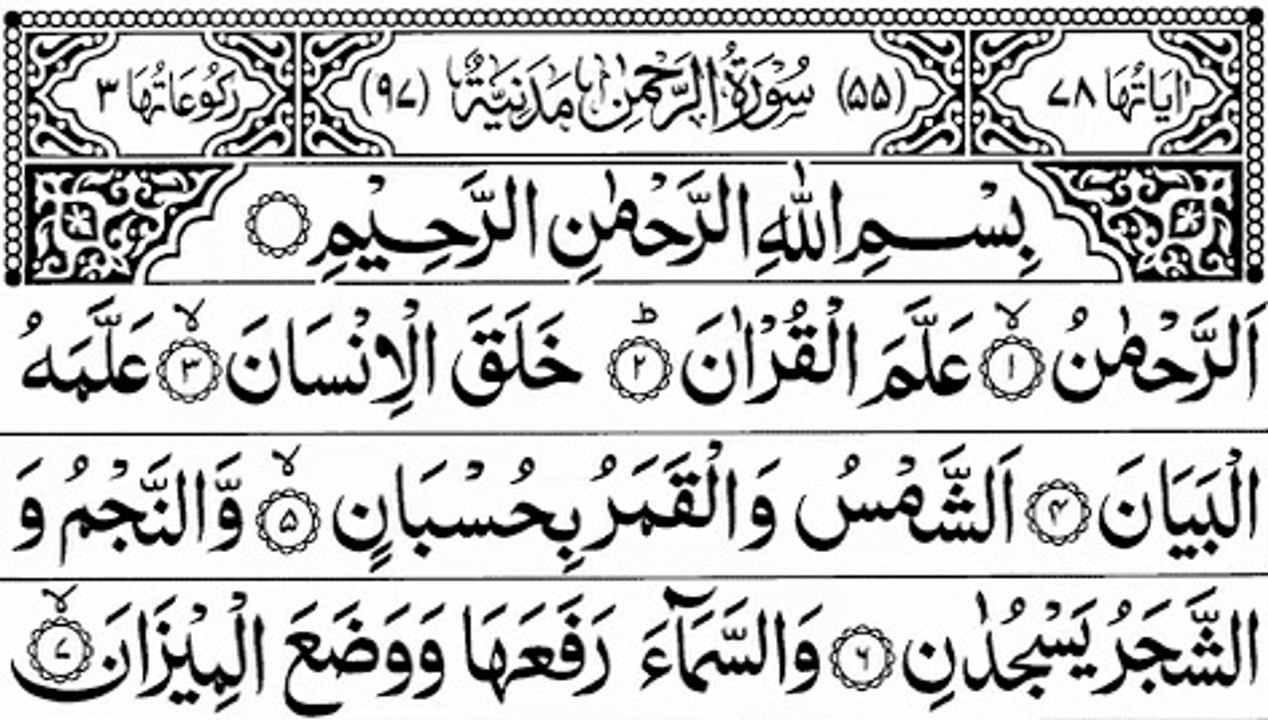 اٰيَاتُهَا ٧٨ (٥٥) سُوْرَةُ الرَّحْمٰنِ مَدَنِيَّةٌ (٩٧) رَكُوْعَاتُهَا ٣
بِسْمِ اللّٰهِ الرَّحْمٰنِ الرَّحِيْمِ ۝
اَلرَّحْمٰنُ ۙ﴿۱﴾ عَلَّمَ الْقُرْاٰنَ ؕ﴿۲﴾ خَلَقَ الْاِنْسَانَ ۙ﴿۳﴾ عَلَّمَهُ
الْبَيَانَ ﴿۴﴾ اَلشَّمْسُ وَالْقَمَرُ بِحُسْبَانٍ ۙ﴿۵﴾ وَّالنَّجْمُ وَ
الشَّجَرُ يَسْجُدٰنِ ﴿۶﴾ وَالسَّمَآءَ رَفَعَهَا وَوَضَعَ الْمِيْزَانَ ۙ﴿۷﴾